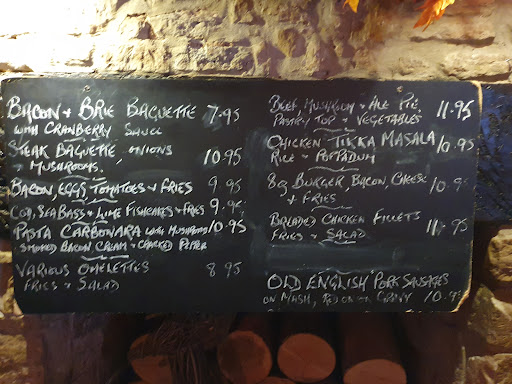 BACON + BRIE BAGUETTE 7.95
WITH CRANBERRY SAUCE
STEAK BAGUETTE ONIONS 10.95
+ MUSHROOMS.
BACON, EGGS, TOMATOES + FRIES 9.95
COD, SEA BASS + LIME FISHCAKES + FRIES 9.95
PASTA CARBONARA WITH MUSHROOMS 10.95
SMOKED BACON CREAM + CRACKED PEPPER
VARIOUS OMELETTES 8.95
FRIES + SALAD
BEEF, MUSHROOM + ALE PIE, 11.95
PASTRY TOP + VEGETABLES
CHICKEN TIKKA MASALA 10.95
RICE + POPPADUM
8oz BURGER, BACON, CHEESE 10.95
+ FRIES
BREADED CHICKEN FILLETS 11.95
FRIES + SALAD
OLD ENGLISH PORK SAUSAGES
ON MASH, RED ONION GRAVY 10.95